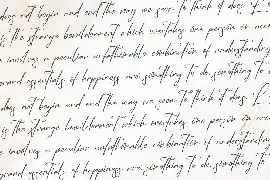 does not begin and end the way we seem to think it does. [
is the strange bewilderment which overtakes one person in
involves a peculiar unfathomable combination of understanding
grand essentials of happiness are: something to do, something to
does not begin and end the way we seem to think it does. [
is the strange bewilderment which overtakes one person
involves a peculiar unfathomable combination of understanding
grand essentials of happiness are: something to do, something to